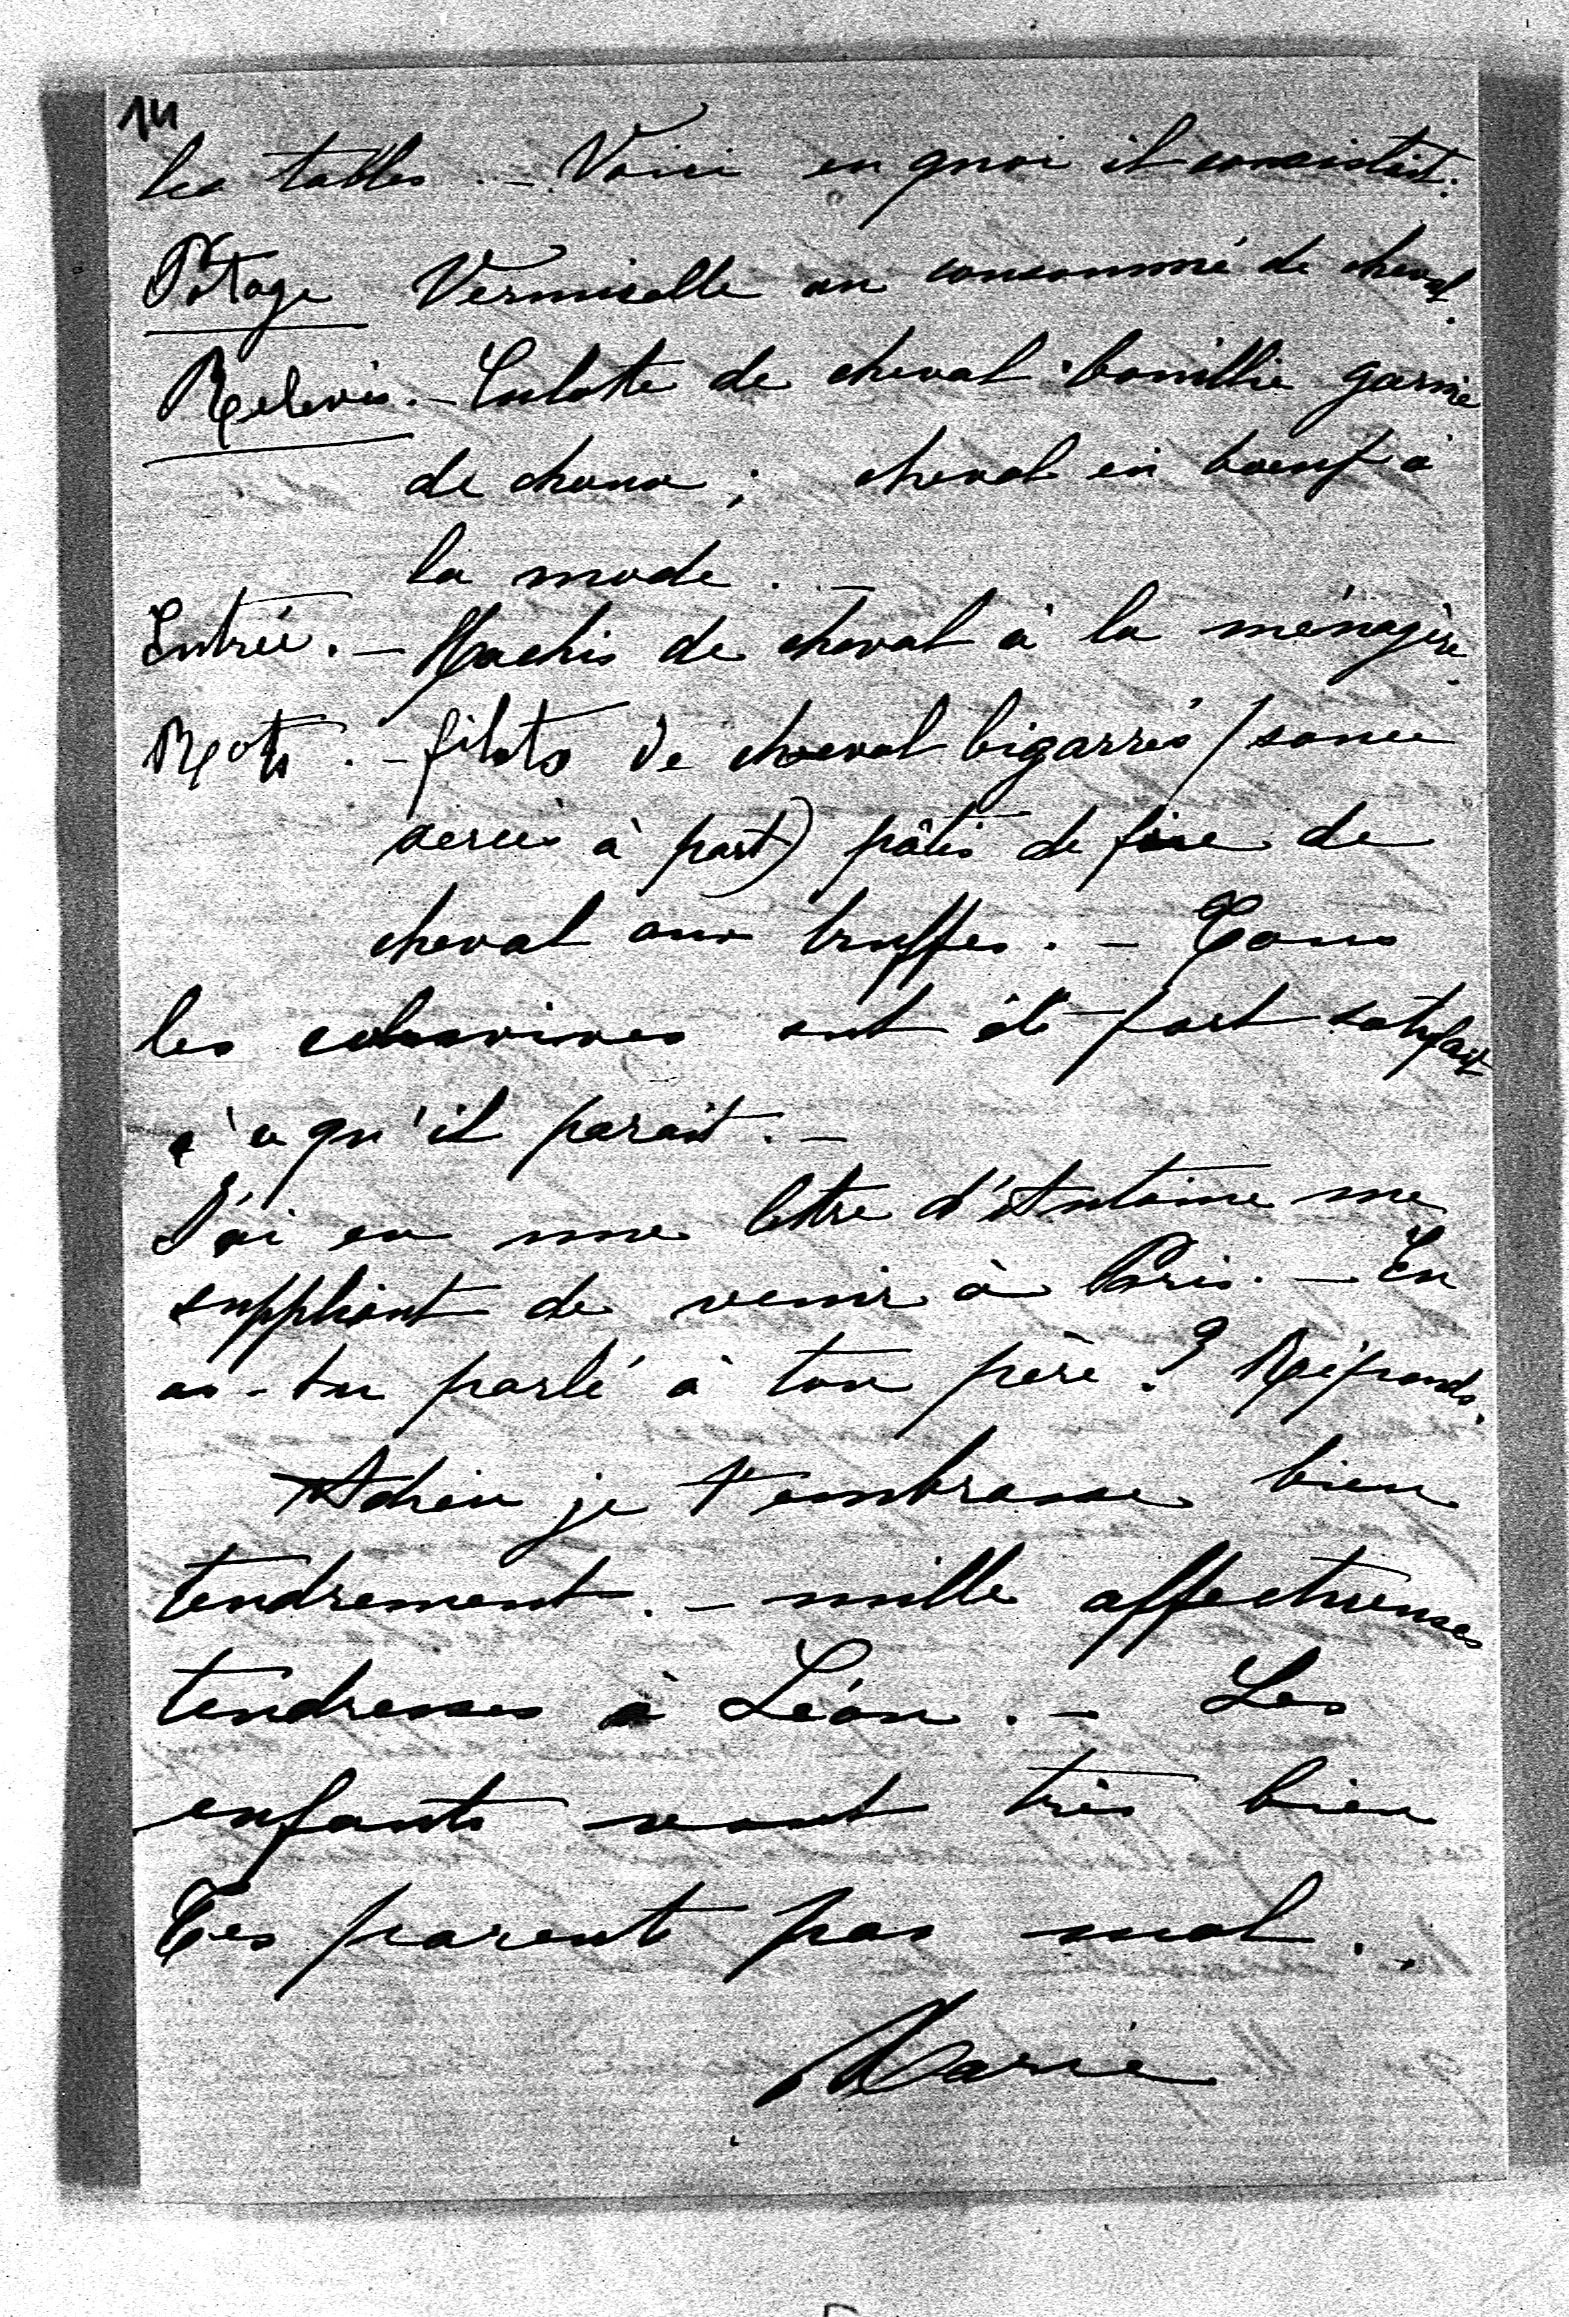 14
les tables. – Voici en quoi il consistait.
Potage Vermicelle au consommé de cheval.
Relevés. – Culotte de cheval bouillie garnie
de choux ; cheval en boeuf à
la mode. –
Entrée. – Hachis de cheval à la ménagère.
Rots. – filets de cheval bigarrés (sauce
servie à part) pâtés de foie de
cheval aux truffes. – Tous
les convives ont été fort satisfaits
à ce qu'il parait. –
J'ai eu une lettre d'Antoine me
suppliant de venir à Paris. – En
as-tu parlé à ton père ? Réponds.
Adieu je t'embrasse bien
tendrement. – mille affectueuses
tendresses à Léon. – Les
enfants vont très bien
Tes parents pas mal.
Marie